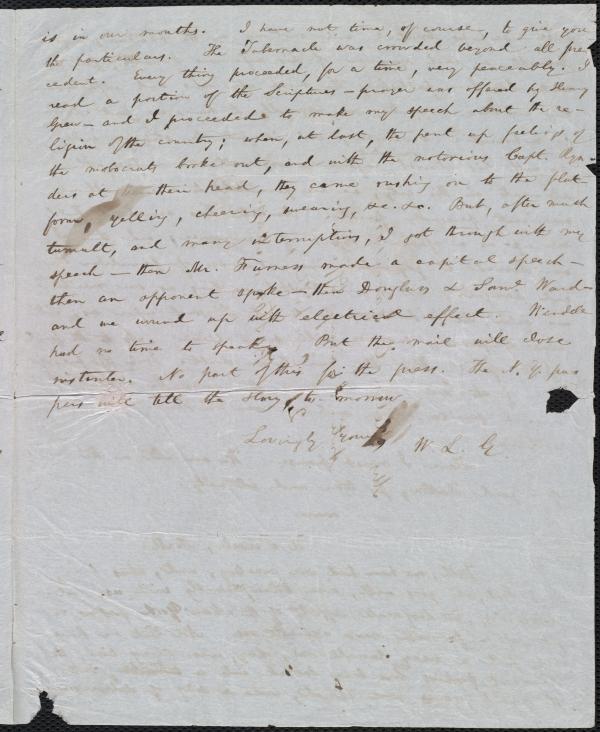 is in our mouths. I have not time, of course, to give you
the particulars. The Tabernacle was crowded beyond all pre
cedent. Every thing proceeded, for a time, very peaceably. I
read a portion of the Scriptures — prayer was offered by Henry
Grew — and I proceeded to make my speech about the re-
ligion of the country; when, at last, the pent up feelings of
the mobocrats broke out, and with the notorious Capt. Ryn-
ders at their head, they came rushing on to the plat
form, yelling, cheering, swearing, &c. &c. But, after much
tumult, and many interruptions, I got through with my
speech — then Mr. Furness made a capital speech —
then an opponent spoke — then Douglass & Saml Ward —
and we wound up with electrical effect. Wendell
had no time to speak. But the mail will close
instanter. No part of this for the press. The N. Y. pa
pers will tell the story to-morrow.
Lovingly yours, W. L. G.